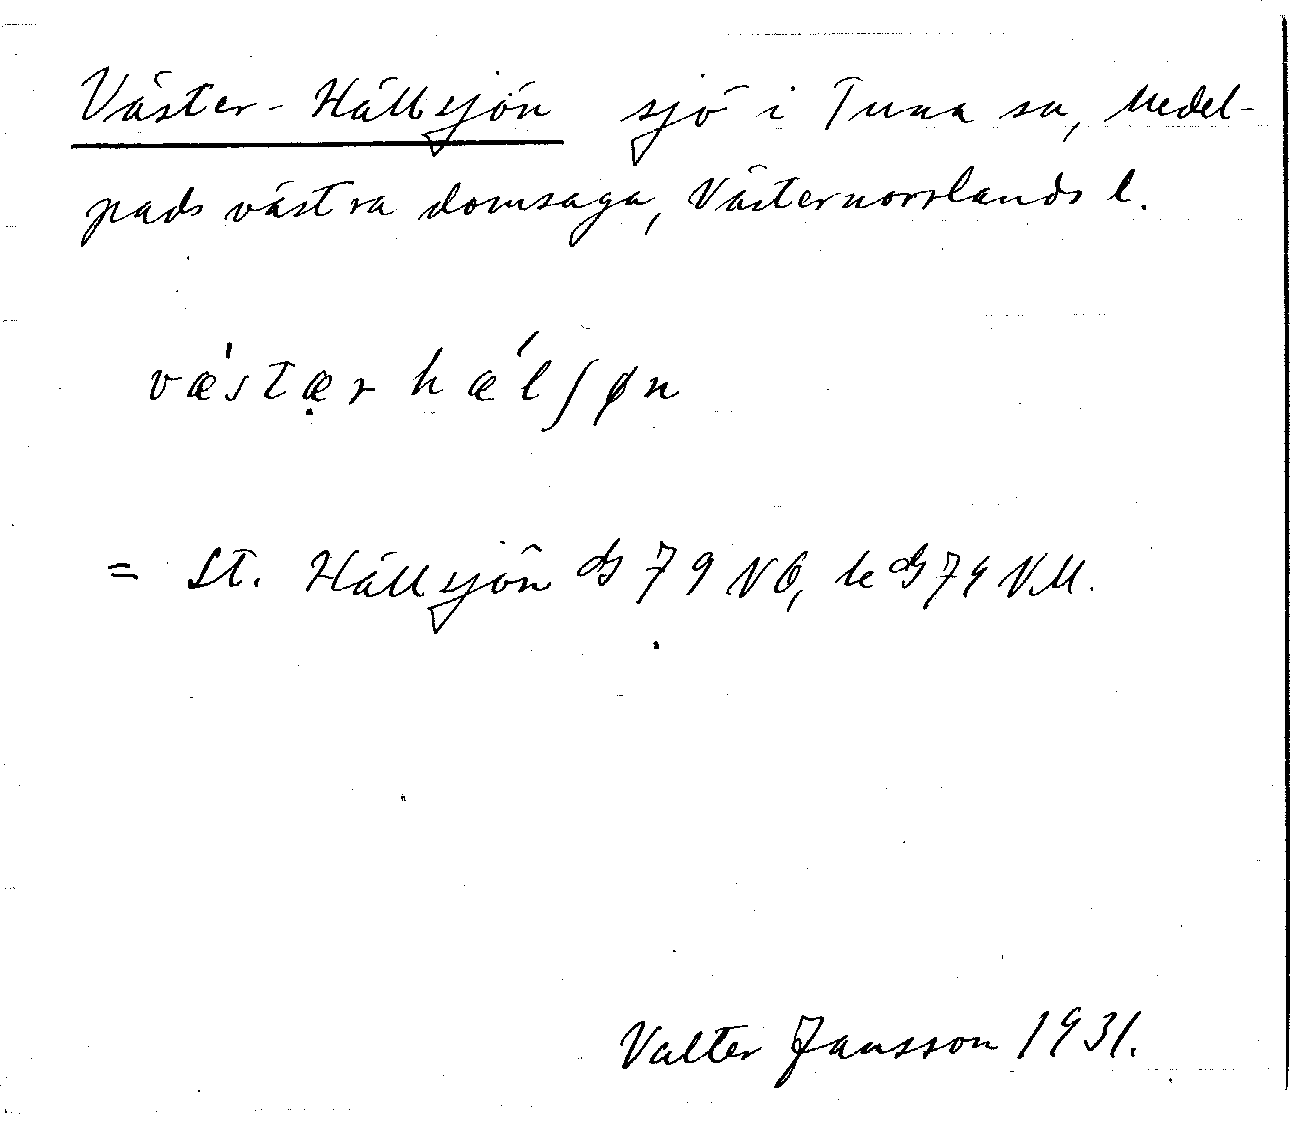 Väster-Hällsjön sjö i Tuna sn, Medel-
pads västra domsaga, Västernorrlands l.
vǽstær hǽlʃøn
= St. Hällsjön ds 79 NO, le ds 79 NV.
Valter Jansson 1931.